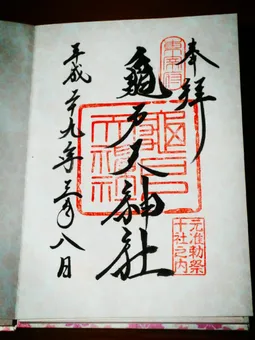 奉拝
東宰府
龜戸天神社
龜戸天神社
元准勅祭
十社之内
平成二十九年三月八日